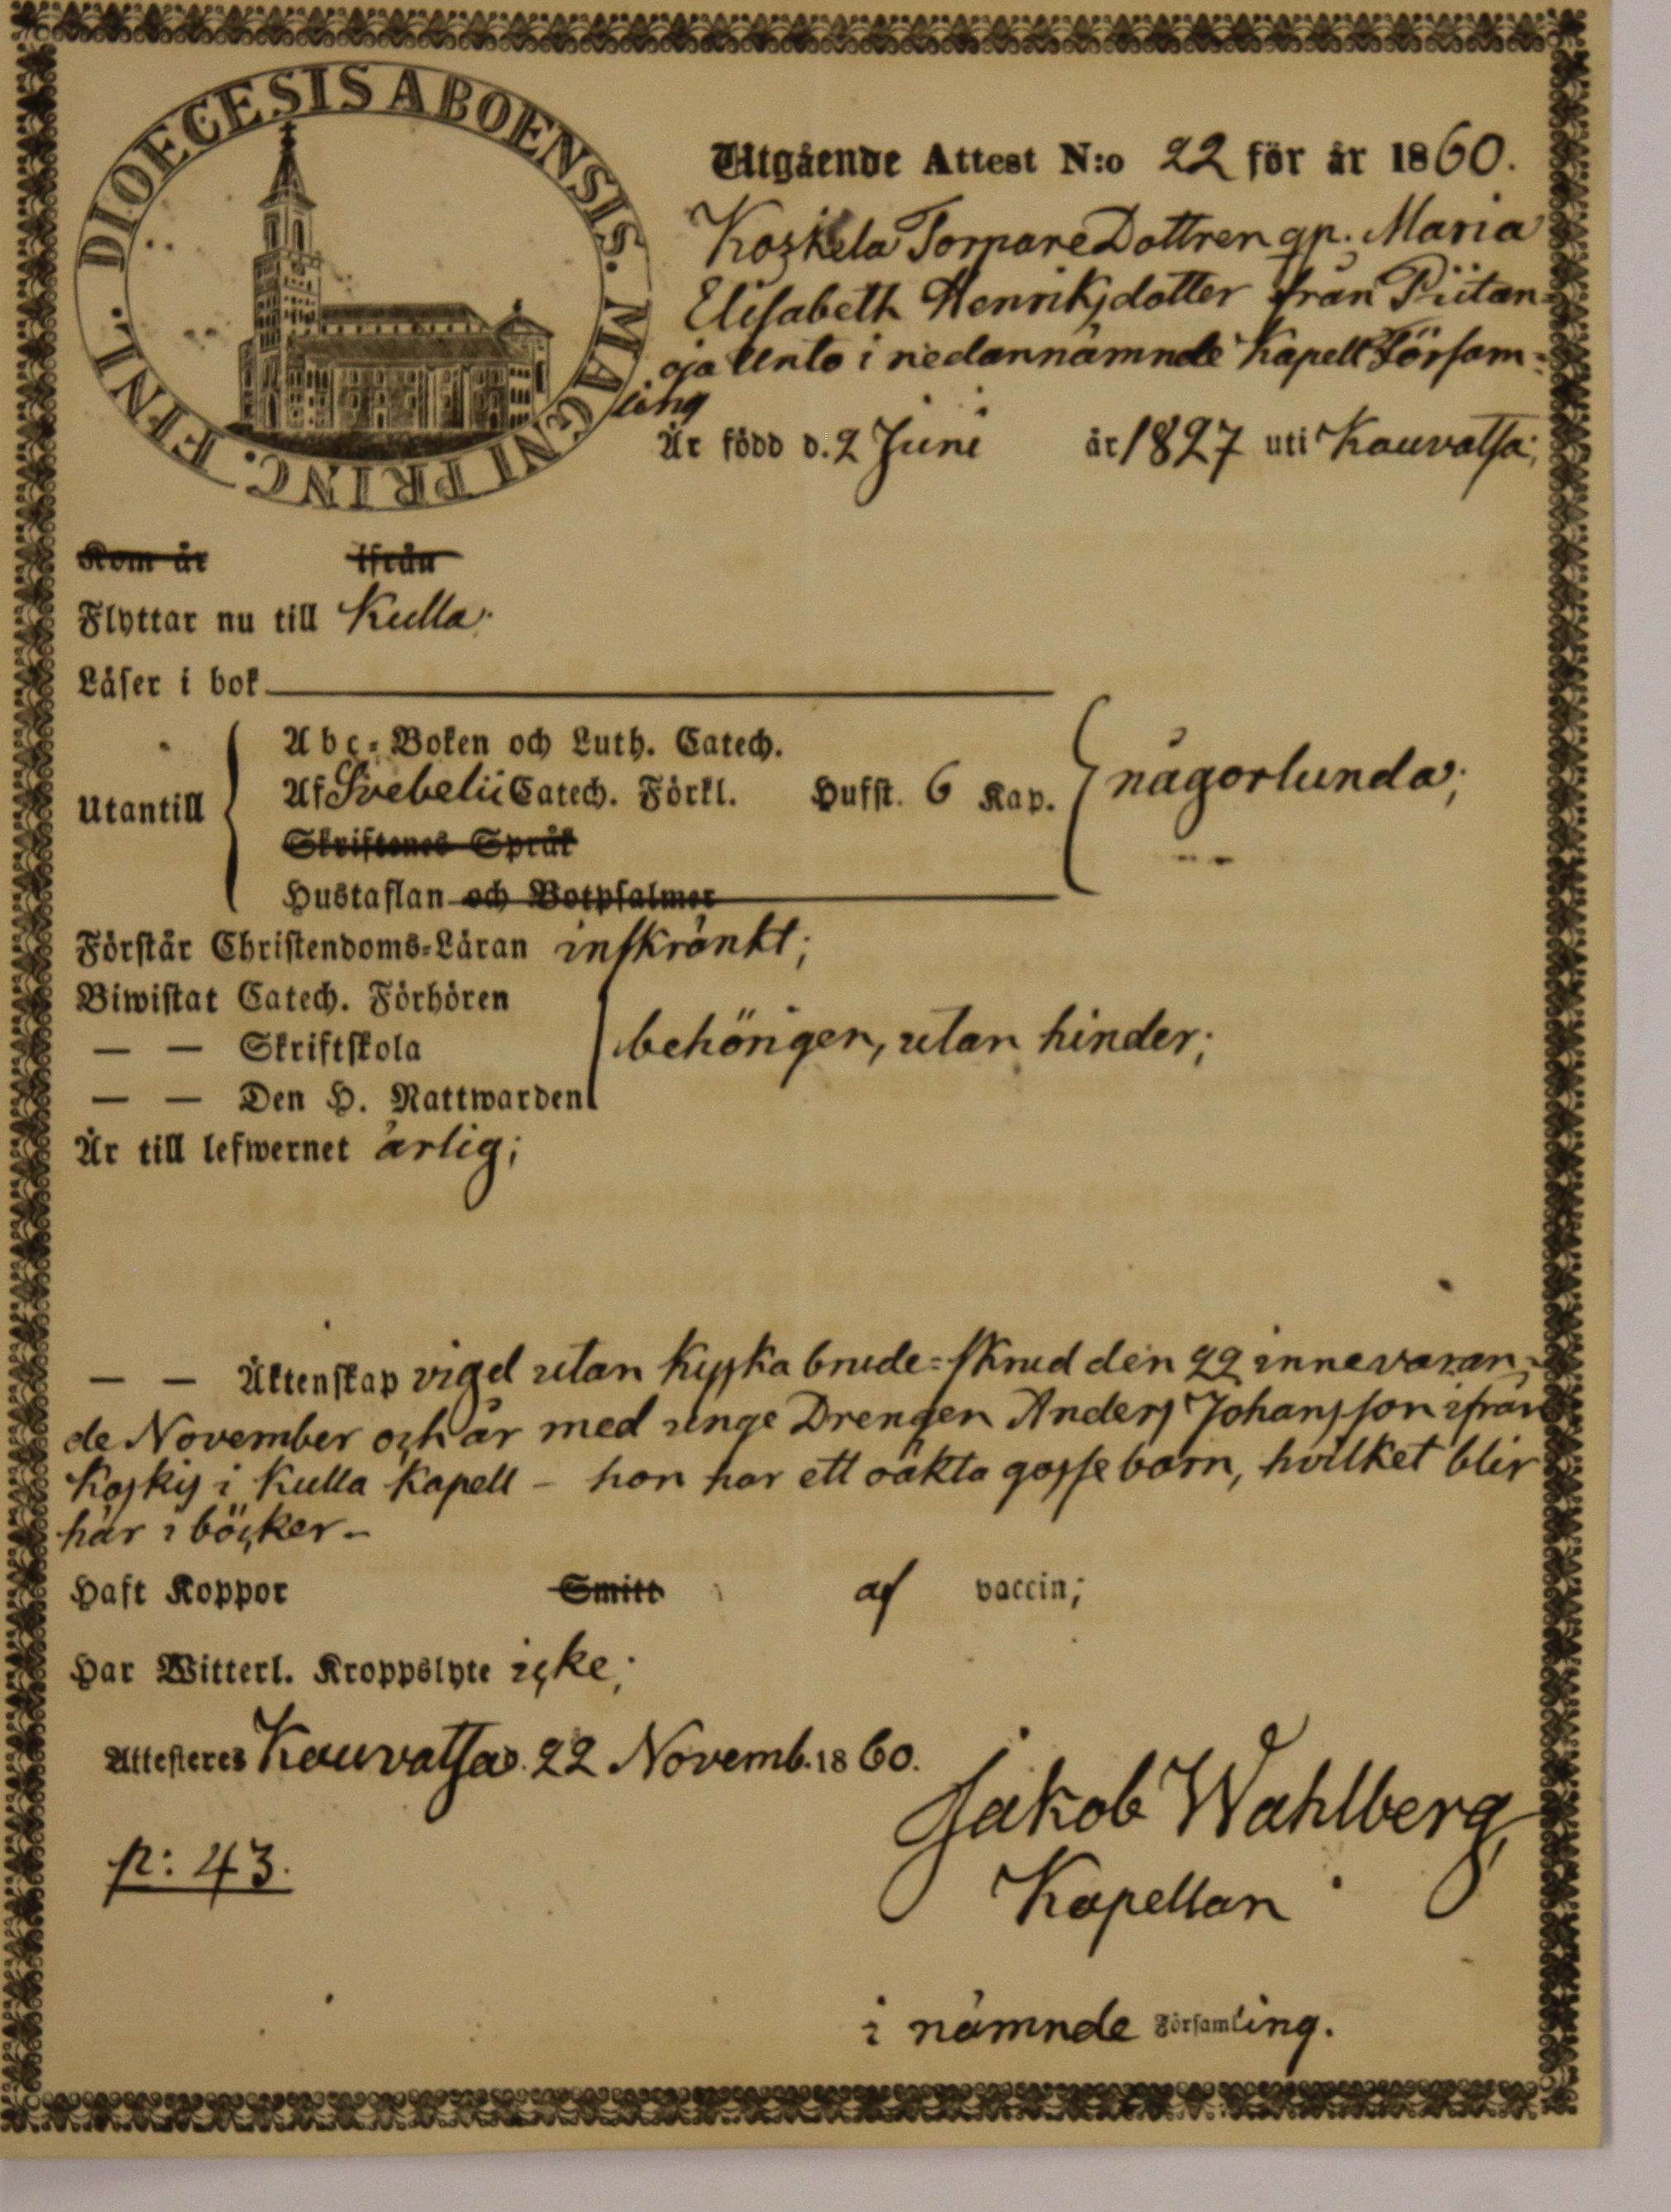 DIOECESIS ABOENSIS. MAGNI PRINC. FINL.
Utgående Attest N:o 22 för år 1860.
Koskela Torpare Dottren gp. Maria
Elisabeth Henriksdotter från Piitan-
oja Unto i nedannämnde Kapell Försam-
ling
Är född d. 2 Juni år 1827 uti Kauvatsa;
Kom år ifrån
Flyttar nu till Kulla.
Läser i bok
Abc-Boken och Luth. Catech.
Utantill Af Svebelii Catech. Förkl. Hufst. 6 Kap. någorlunda;
Skriftenes Språk
Hustaflan och Botpsalmer
Förstår Christendoms-Läran inskränkt;
Biwistat Catech. Förhören
— — Skriftskola behörigen, utan hinder;
— — Den H. Nattwarden
Är till lefwernet ärlig;
— — Äktenskap vigd utan kyska brude-skrud den 22 innevaran-
de November och år med unge Drengen Anders Johansson ifrån
Koskis i Kulla Kapell – hon har ett oäkta gosse barn, hvilket blir
här i böcker –
Haft Koppor Smitt af vaccin;
Har Witterl. Kroppslyte icke;
Attesteres Kauvatsa d. 22 Novemb. 1860.
Jakob Wahlberg,
p: 43.
Kapellan
i nämnde Församling.